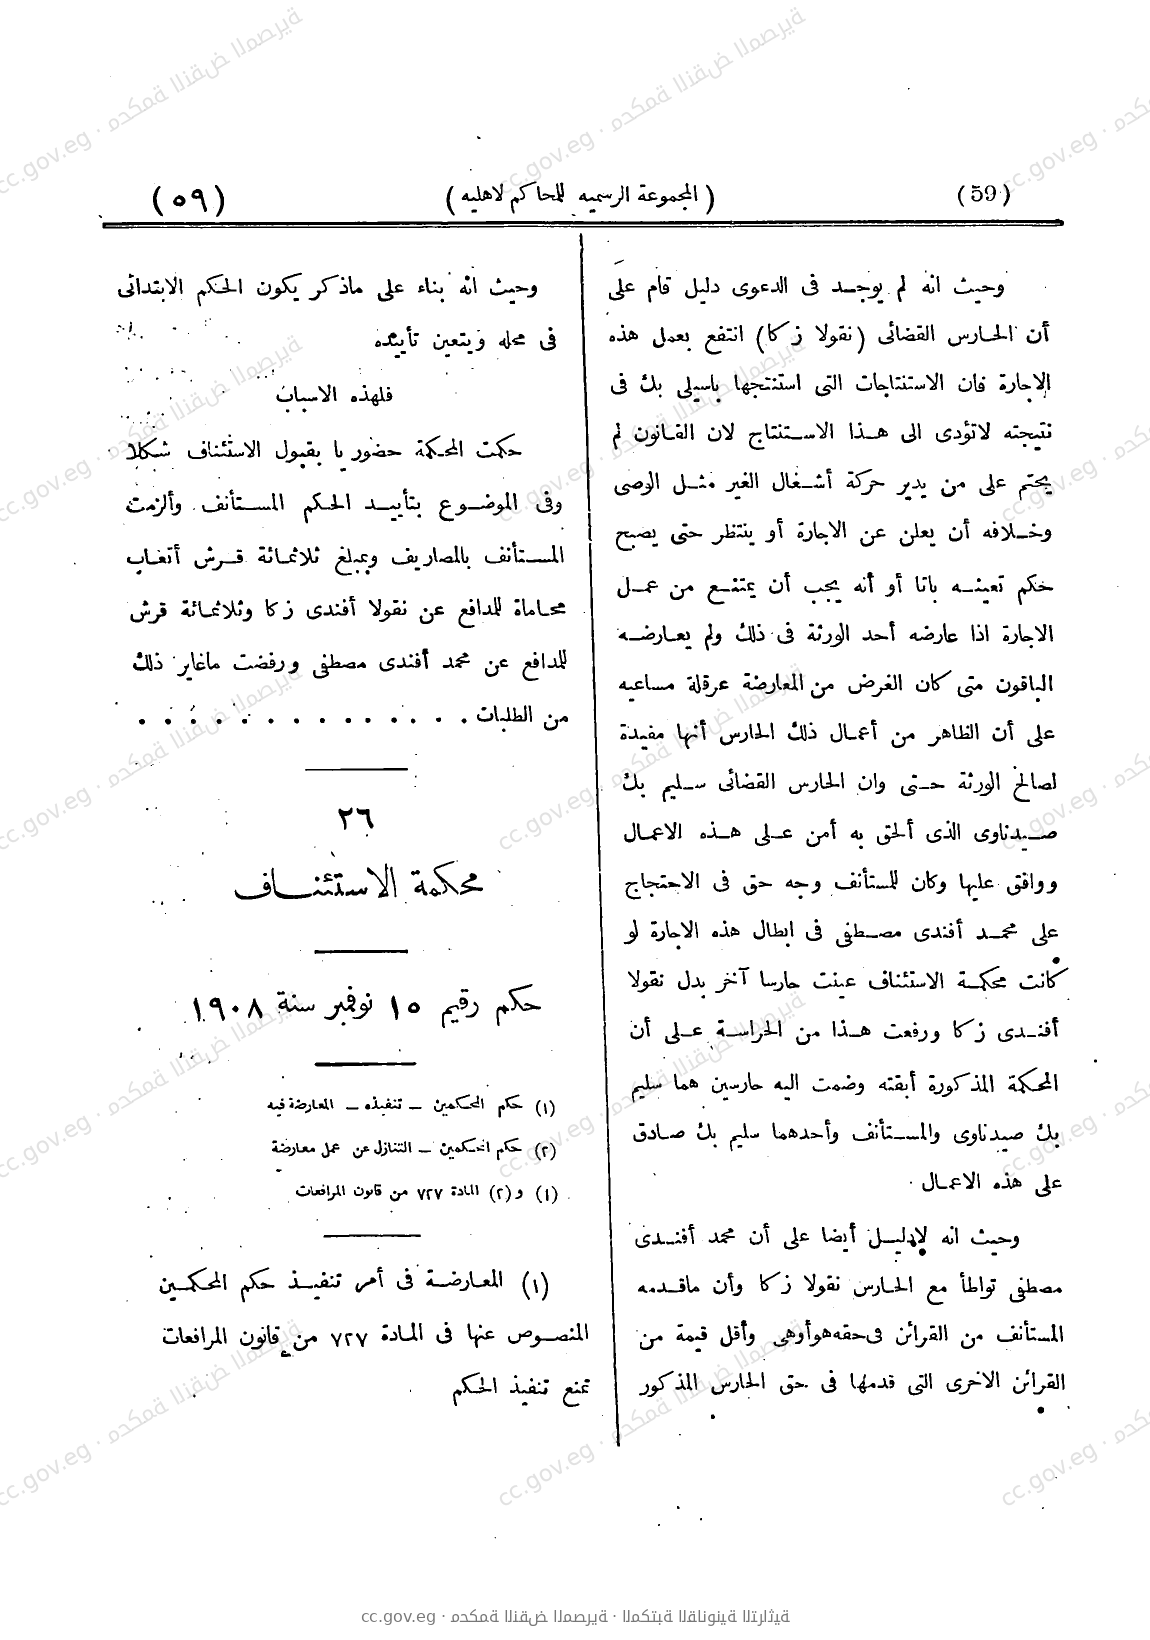 (59)
(المجموعة الرسميه للمحاكم لاهليه)
(٥٩)
وحيث انه لم يوجد فى الدعوى دليل قام على
أن الحارس القضائى (نقولا زكا) انتفع بعمل هذه
الاجارة فان الاستنتاجات التى استنتجها باسيلى بك فى
نتيجته لاتؤدى الى هذا الاستنتاج لان القانون لم
يحتم على من يدير حركة أشغال الغير مثل الوصى
وخلافه أن يعلن عن الاجارة أو ينتظر حتى يصبح
حكم تعينه باتا أو أنه يجب أن يمتنع من عمل
الاجارة اذا عارضه أحد الورثة فى ذلك ولم يعارضه
الباقون متى كان الغرض من المعارضة عرقلة مساعيه
على أن الظاهر من أعمال ذلك الحارس أنها مفيدة
لصالح الورثة حتى وان الحارس القضائى سليم بك
صيدناوى الذى ألحق به أمن على هذه الاعمال
ووافق عليها وكان للمستأنف وجه حق فى الاحتجاج
على محمد أفندى مصطفى فى ابطال هذه الاجارة لو
كانت محكمة الاستئناف عينت حارسا آخر بدل نقولا
أفندى زكا ورفعت هذا من الحراسة على أن
المحكمة المذكورة أبقته وضمت اليه حارسين هما سليم
بك صيدناوى والمستأنف وأحدهما سليم بك صادق
على هذه الاعمال
وحيث انه لادليل أيضا على أن محمد أفندى
مصطفى تواطأ مع الحارس نقولا زكا وأن ماقدمه
المستأنف من القرائن فى حقه هو أوهى وأقل قيمة من
القرائن الاخرى التى قدمها فى حق الحارس المذكور
وحيث انه بناء على ماذكر يكون الحكم الابتدائى
فى محله ويتعين تأييده
فلهذه الاسباب
حكمت المحكمة حضوريا بقبول الاستئناف شكلا
وفى الموضوع بتأييد الحكم المستأنف وألزمت
المستأنف بالمصاريف وبمبلغ ثلاثمائة قرش أتعاب
محاماة للمدافع عن نقولا أفندى زكا وثلاثمائة قرش
للمدافع عن محمد أفندى مصطفى ورفضت ماغاير ذلك
من الطلبات . . . . . . . . . . . . . .
٢٦
محكمة الاستئناف
حكم رقيم ١٥ نوفمبر سنة ١٩٠٨
(١) حكم المحكمين – تنفيذه – المعارضة فيه
(٢) حكم المحكمين – التنازل عن عمل معارضة
(١) و(٢) المادة ٧٢٧ من قانون المرافعات
(١) المعارضة فى أمر تنفيذ حكم المحكمين
المنصوص عنها فى المادة ٧٢٧ من قانون المرافعات
تمنع تنفيذ الحكم
cc.gov.eg · محكمة النقض المصرية · المكتبة القانونية التراثية